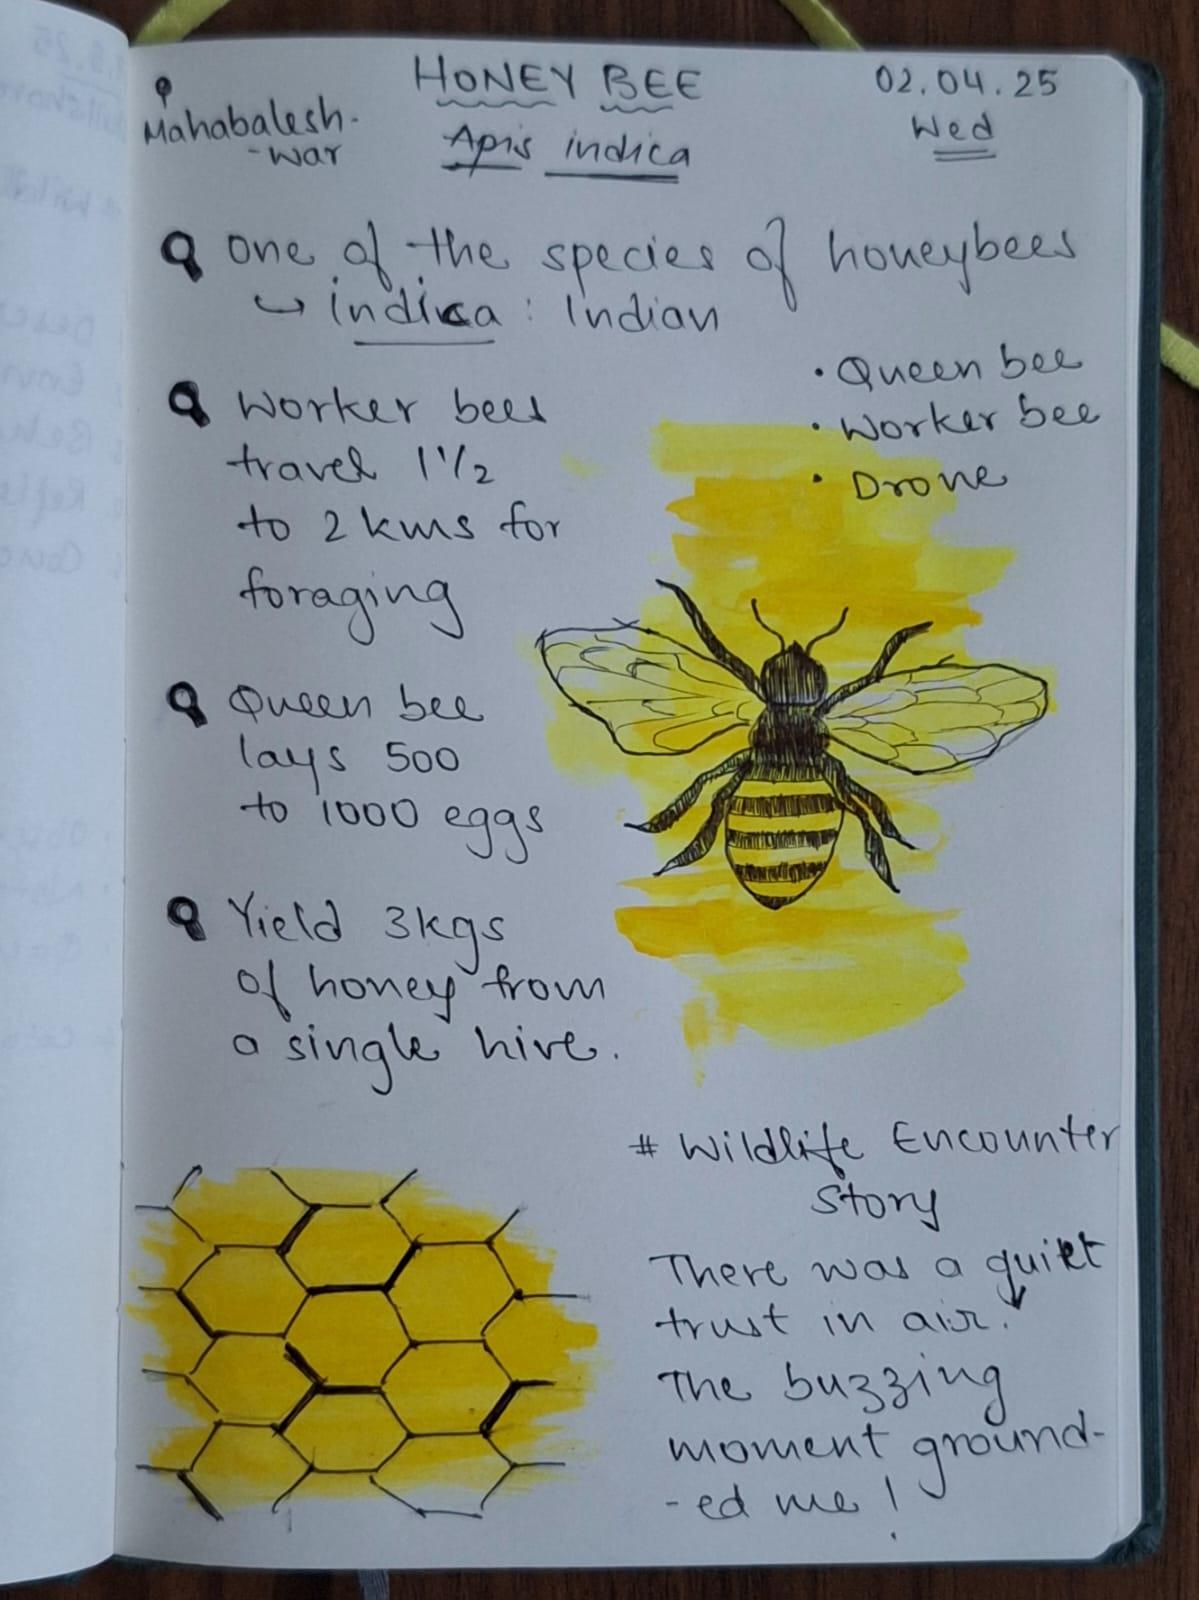 Mahabalesh-
-war
HONEY BEE
Apis indica
02.04.25
Wed
One of the species of honeybees
↳ indica : Indian
Worker bees
travel 1 1/2
to 2 kms for
foraging
• Queen bee
• Worker bee
• Drone
Queen bee
lays 500
to 1000 eggs
Yield 3kgs
of honey from
a single hive.
# Wildlife Encounter
Story
There was a quiet
trust in air.
The buzzing
moment ground-
-ed me!